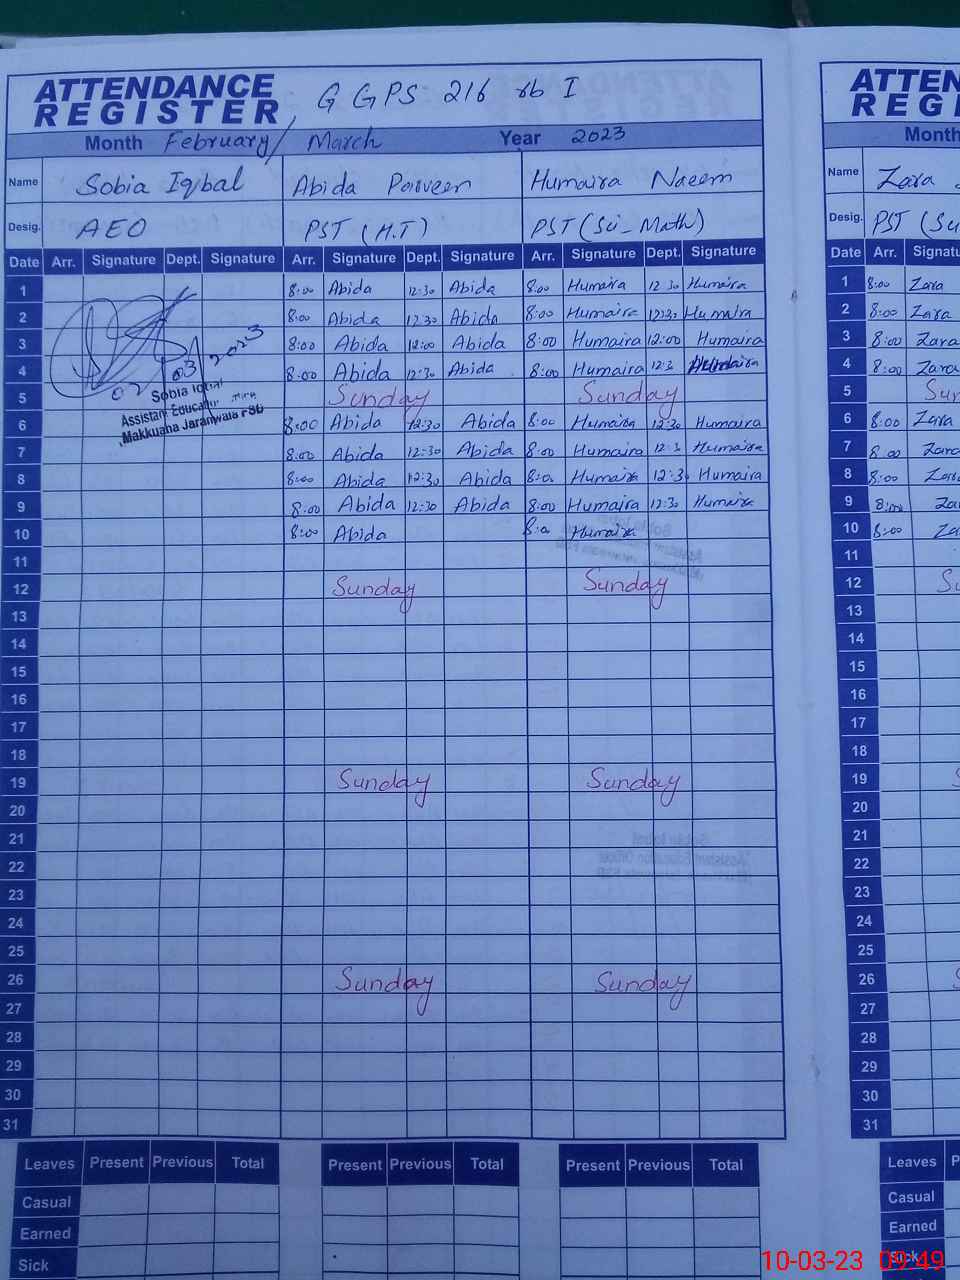 ATTENDANCE REGISTER G GPS 216 rb I
Month February/ March Year 2023
Name Sobia Iqbal Abida Parveen Humaira Naeem
Desig. AEO PST (H.T) PST (Sci-Math)
Date Arr. Signature Dept. Signature Arr. Signature Dept. Signature Arr. Signature Dept. Signature
1 8:00 Abida 12:30 Abida 8:00 Humaira 12 30 Humaira
2 8:00 Abida 12 30 Abida 8:00 Humaira 12:30 Humaira
3 8:00 Abida 12:00 Abida 8:00 Humaira 12:00 Humaira
4 8:00 Abida 12:30 Abida 8:00 Humaira 12:3 Humaira
02 03 2023
Sobia Iqbal
Assistant Education
Makkuana Jaranwala FSD
5 Sunday Sunday
6 8:00 Abida 12:30 Abida 8:00 Humaira 12:30 Humaira
7 8:00 Abida 12:30 Abida 8:00 Humaira 12:3 Humaira
8 8:00 Abida 12:30 Abida 8:0 Humaira 12:30 Humaira
9 8:00 Abida 12:30 Abida 8:00 Humaira 12:30 Humaira
10 8:00 Abida 8:0 Humaira
11
12 Sunday Sunday
13
14
15
16
17
18
19 Sunday Sunday
20
21
22
23
24
25
26 Sunday Sunday
27
28
29
30
31
Leaves Present Previous Total Present Previous Total Present Previous Total
Casual
Earned
Sick
ATTEN
REGI
Month
Name Zara
Desig. PST (Sc
Date Arr. Signatu
1 8:00 Zara
2 8:00 Zara
3 8:00 Zara
4 8:00 Zara
5 Sun
6 8:00 Zara
7 8:00 Zara
8 8:00 Zara
9 8:00 Za
10 8:00 Za
11
12 Su
13
14
15
16
17
18
19 S
20
21
22
23
24
25
26 S
27
28
29
30
31
Leaves P
Casual
Earned
Sick
10-03-23 09:49